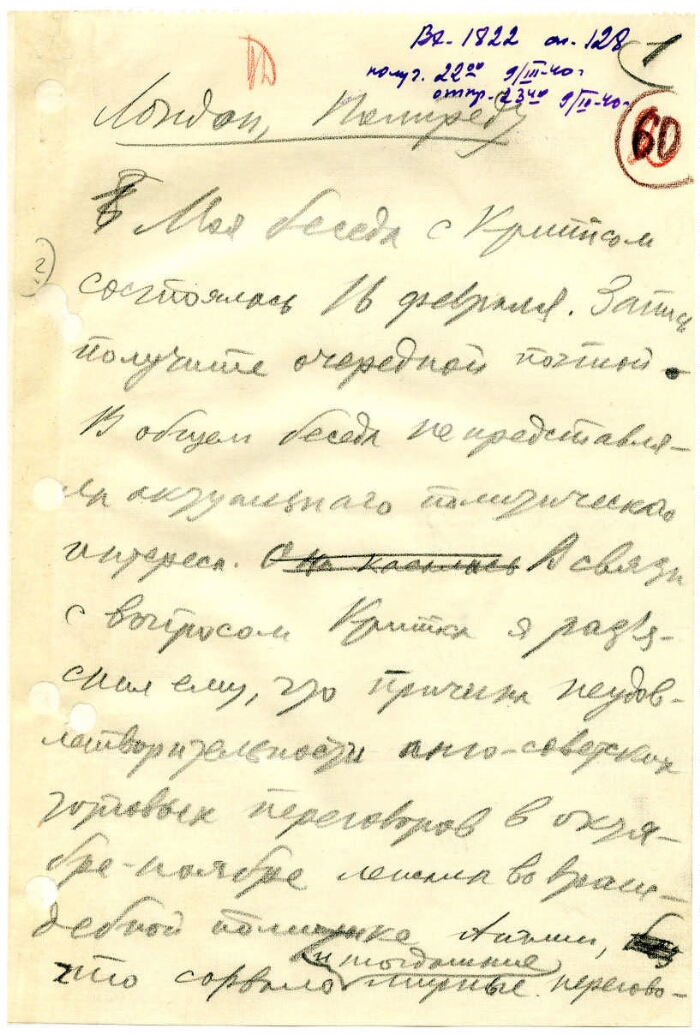 Вх-1822 он. 128
1
получ. 22⁰⁰ 9/III-40г
отпр. 23⁴⁰ 9/III-40г
60
Лондон, Полпреду
Моя беседа с Криппсом
?)
состоялась 16 февраля. Запись
получите очередной почтой.
В общем беседа не представля-
ла актуального политического
интереса. Она касалась В связи
с вопросом Криппса я разъя-
снил ему, что причина неудов-
летворительности англо-советских
торговых переговоров в октя-
бре-ноябре лежала во враж-
дебной политике Англии,
и тогдашние
что сорвало мирные перегово-